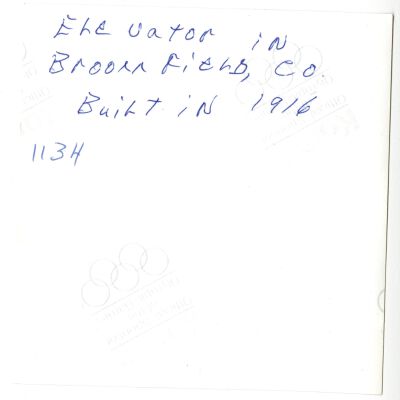 Ele vator in
Broom Field, Co.
Built in 1916
1134